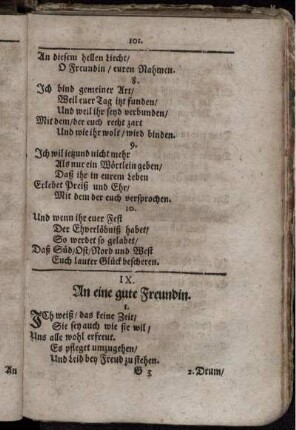 101.
An diesem hellen Liecht/
O Freundin/ euren Nahmen.
8.
Ich bind gemeiner Art/
Weil euer Tag itzt funden/
Und weil ihr seyd verbunden/
Mit dem/ der euch recht zart
Und wie ihr wolt/ wird binden.
9.
Ich wil ietzund nicht mehr
Als nur ein Wörtlein geben/
Daß ihr in eurem Leben
Erlebet Preiß und Ehr/
Mit dem der euch versprochen.
10.
Und wenn ihr euer Fest
Der Ehverlöbniß habet/
So werdet so gelabet/
Daß Süd/ Ost/ Nord und West
Euch lauter Glück bescheren.
IX.
An eine gute Freundin.
1.
ICh weiß/ das keine Zeit/
Sie sey auch wie sie wil/
Uns alle wohl erfreut.
Es pfleget umzugehen/
Und Leid bey Freud zu stehen.
G 3
2. Drum/
An